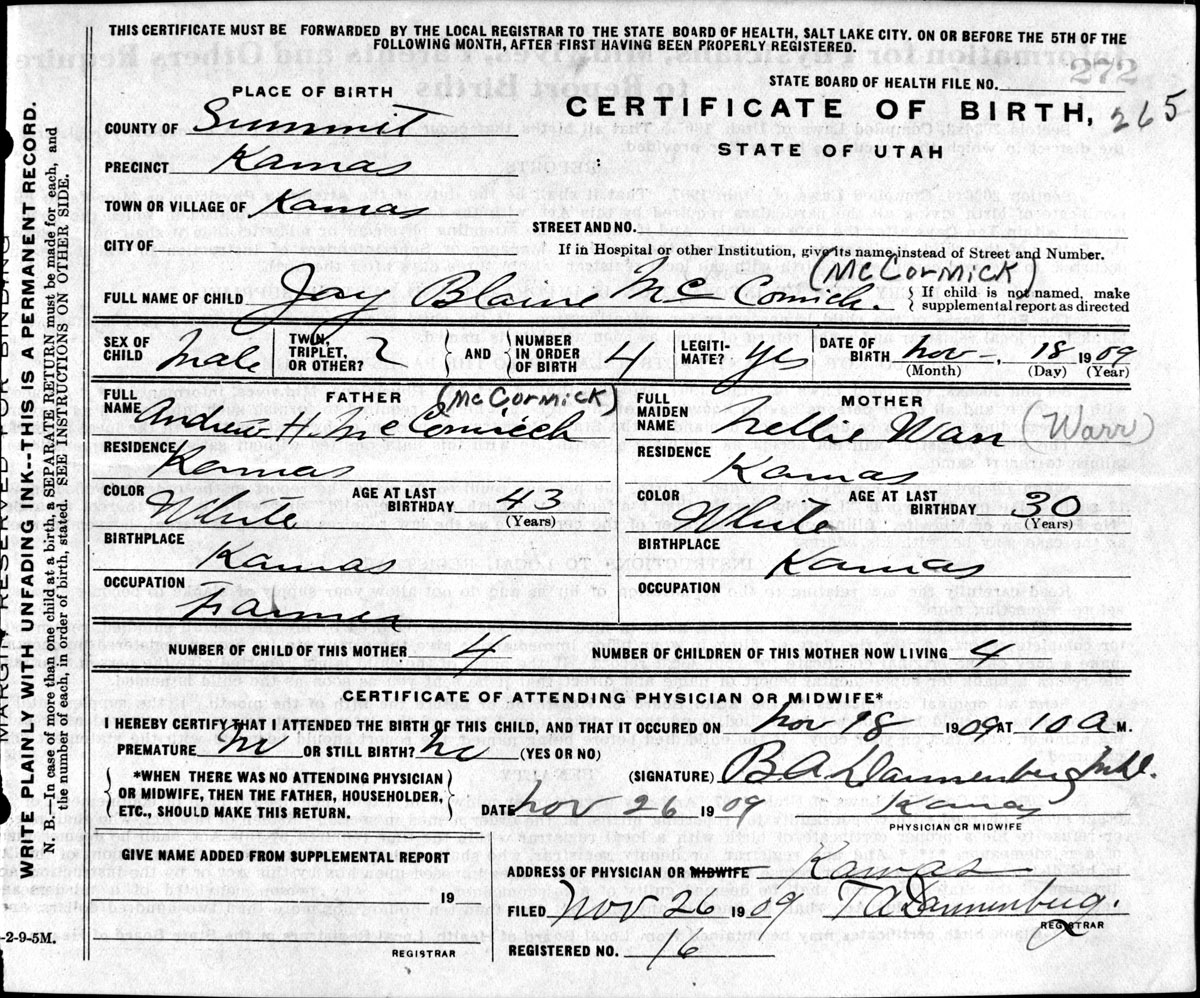 THIS CERTIFICATE MUST BE FORWARDED BY THE LOCAL REGISTRAR TO THE STATE BOARD OF HEALTH, SALT LAKE CITY, ON OR BEFORE THE 5TH OF THE
FOLLOWING MONTH, AFTER FIRST HAVING BEEN PROPERLY REGISTERED.
272
STATE BOARD OF HEALTH FILE NO.
PLACE OF BIRTH
CERTIFICATE OF BIRTH, 265
STATE OF UTAH
COUNTY OF Summit
PRECINCT Kamas
TOWN OR VILLAGE OF Kamas
STREET AND NO.
CITY OF
If in Hospital or other Institution, give its name instead of Street and Number.
(McCormick)
FULL NAME OF CHILD Jay Blaine McCormick.
If child is not named, make
supplemental report as directed
SEX OF CHILD male
TWIN, TRIPLET, OR OTHER?
AND
NUMBER IN ORDER OF BIRTH 4
LEGITI-MATE? yes
DATE OF BIRTH Nov- 18 1909
(Month) (Day) (Year)
FATHER
(McCormick)
FULL NAME Andrew H. McCormick
RESIDENCE Kamas
COLOR White
AGE AT LAST BIRTHDAY 43
(Years)
BIRTHPLACE Kamas
OCCUPATION Farmer
MOTHER
FULL MAIDEN NAME Nellie Warr (Warr)
RESIDENCE Kamas
COLOR White
AGE AT LAST BIRTHDAY 30
(Years)
BIRTHPLACE Kamas
OCCUPATION
NUMBER OF CHILD OF THIS MOTHER 4
NUMBER OF CHILDREN OF THIS MOTHER NOW LIVING 4
CERTIFICATE OF ATTENDING PHYSICIAN OR MIDWIFE*
I HEREBY CERTIFY THAT I ATTENDED THE BIRTH OF THIS CHILD, AND THAT IT OCCURED ON Nov 18 1909 AT 10 a M.
PREMATURE no OR STILL BIRTH? no (YES OR NO)
*WHEN THERE WAS NO ATTENDING PHYSICIAN
OR MIDWIFE, THEN THE FATHER, HOUSEHOLDER,
ETC., SHOULD MAKE THIS RETURN.
(SIGNATURE) B A Dannenburg M.D.
DATE Nov 26 1909 Kamas
PHYSICIAN OR MIDWIFE
GIVE NAME ADDED FROM SUPPLEMENTAL REPORT
19
REGISTRAR
ADDRESS OF PHYSICIAN OR MIDWIFE Kamas
FILED Nov 26 1909 Dannenburg.
REGISTRAR
REGISTERED NO. 16
-2-9-5M.
MARGIN RESERVED FOR BINDING
WRITE PLAINLY WITH UNFADING INK--THIS IS A PERMANENT RECORD.
N. B.—In case of more than one child at a birth, a SEPARATE RETURN must be made for each, and
the number of each, in order of birth, stated. SEE INSTRUCTIONS ON OTHER SIDE.